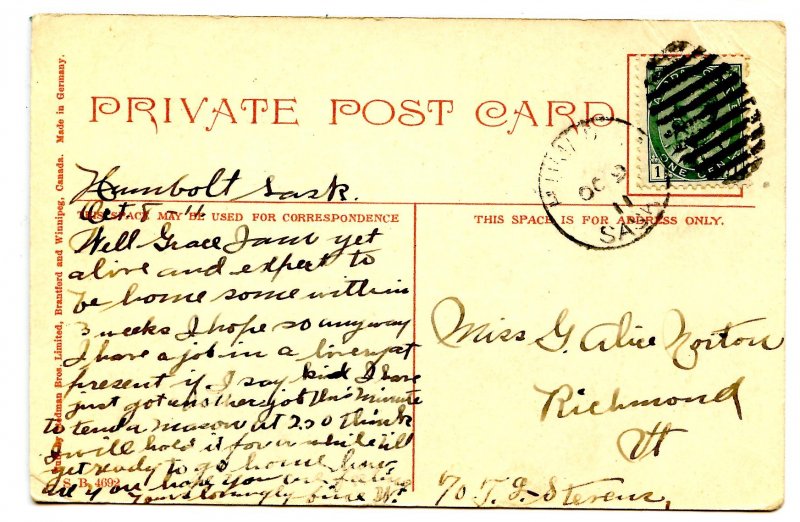 PRIVATE POST CARD
Humbolt Sask.
Oct 8 11
THIS SPACE MAY BE USED FOR CORRESPONDENCE
Well Grace I am yet
alive and expect to
be home some within
3 weeks I hope so anyway
I have a job in a livery at
present if I say kid I have
just got another job this minute
to tend a mason at 2.50 I think
I will hold it for a while till
get ready to go home how
are you hope you are
Yours lovingly
THIS SPACE IS FOR ADDRESS ONLY.
OC 9
11
SASK
ONE CENT
1
Miss G. Alice Norton
Richmond
Vt
c/o T. L. Stevens,
Bros. Limited, Brantford and Winnipeg, Canada. Made in Germany.
S. B. 4692